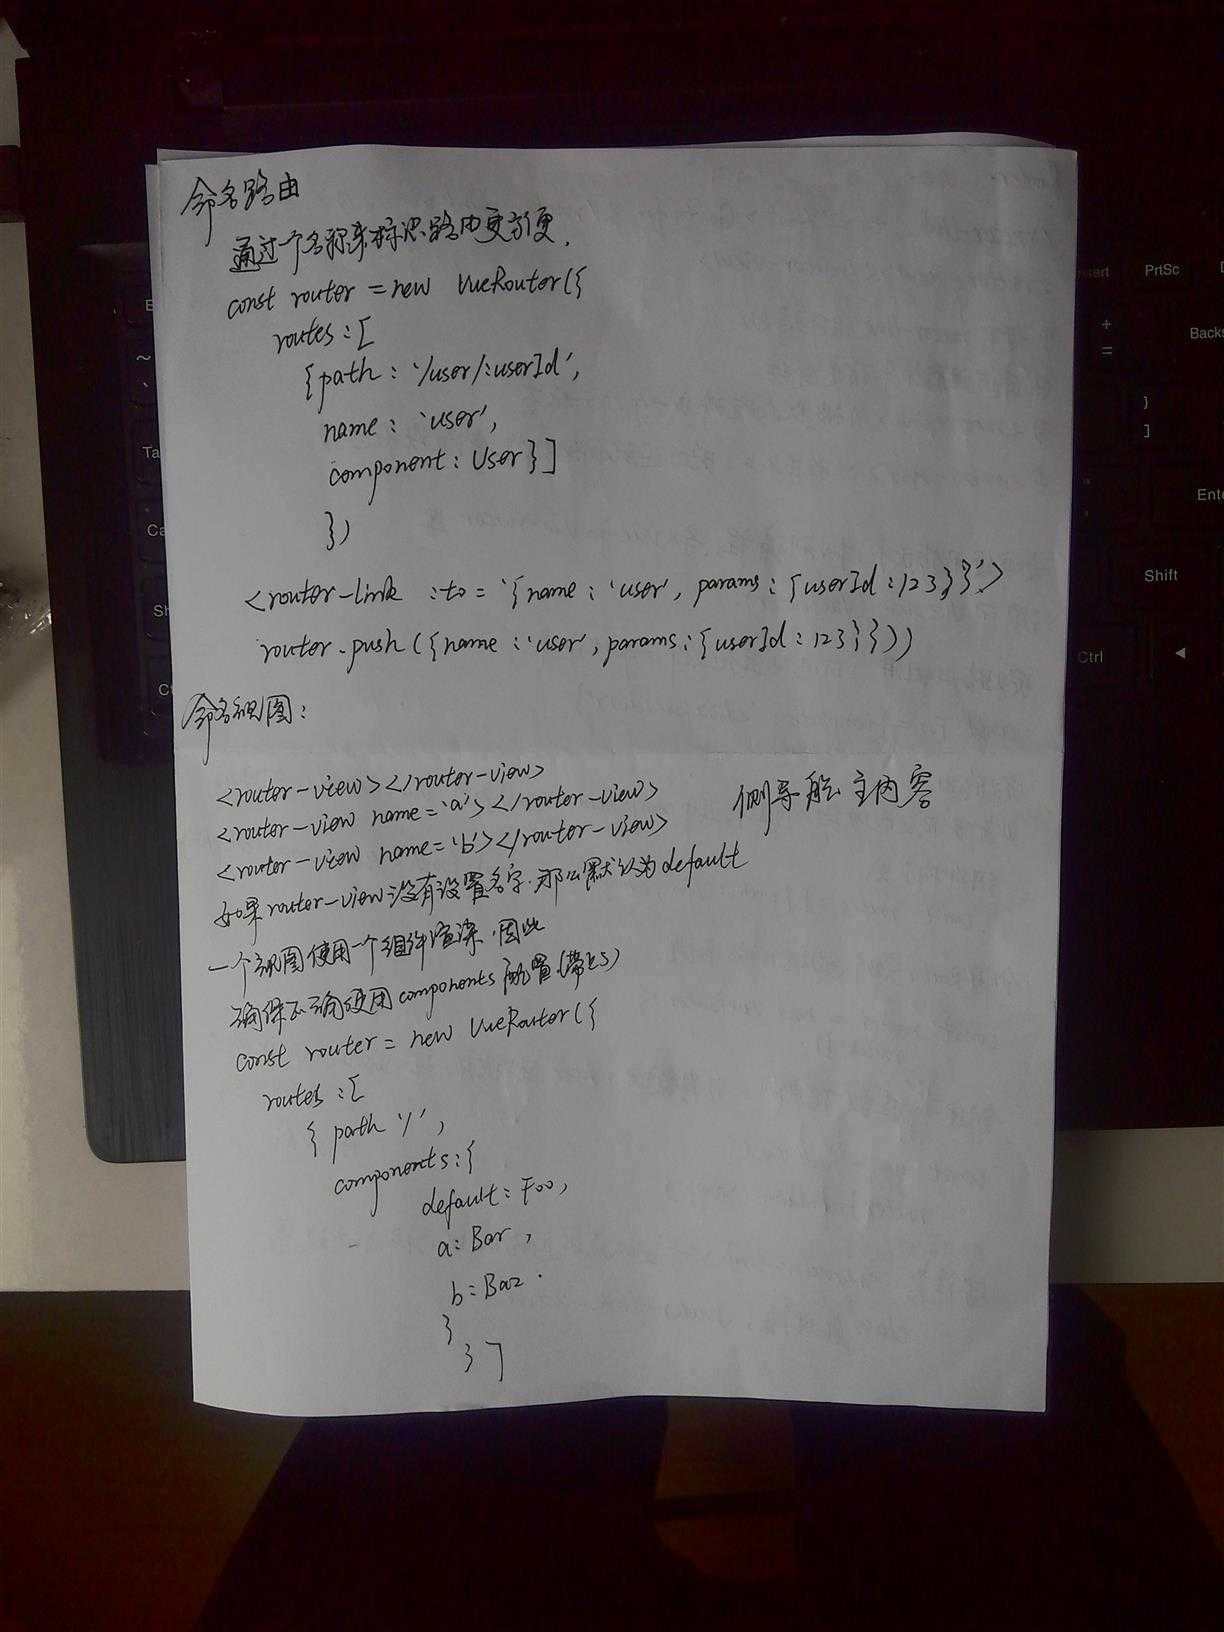 命名路由
通过个名称来标识路由更方便.
const router = new VueRouter({
routes:[
{path: '/user/:userId',
name: 'user',
component: User}]
})
<router-link :to='{name:'user', params:{userId:123}}'>
router.push({name:'user', params:{userId:123}}))
命名视图:
<router-view></router-view>
<router-view name='a'></router-view>
侧导航 主内容
<router-view name='b'></router-view>
如果router-view没有设置名字.那么默认为default
一个视图使用一个组件渲染.因此
确保正确使用components配置(带上s)
const router = new VueRouter({
routes:[
{ path '/',
components:{
default: Foo,
a: Bar,
b: Baz.
}
}]
PrtSc
+
=
Backs
}
]
Ente
Shift
Ctrl
~
Ta
Ca
Sh